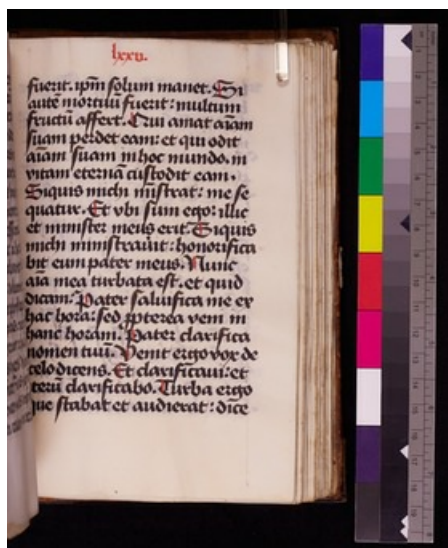 lxxv.
fuerit. ip̄m solum manet. Si
autē mortuū fuerit: multum
fructū affert. Qui amat aīam
suam perdet eam: et qui odit
aīam suam in hoc mundo. in
vitam eternā custodit eam.
Siquis michi mīstrat: me se
quatur. Et vbi sum ego: illic
et minister meus erit. Siquis
michi ministrauit: honorifica
bit eum pater meus. Nunc
aīa mea turbata est. et quid
dicam: Pater saluifica me ex
hac hora: sed ꝓpterea veni in
hanc horam. Pater clarifica
nomen tuū. Venit ergo vox de
celo dicens. Et clarificaui: et
iterū clarificabo. Turba ergo
que stabat et audierat: dice